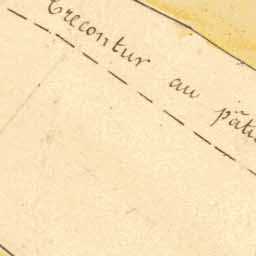 Crecontur au pât